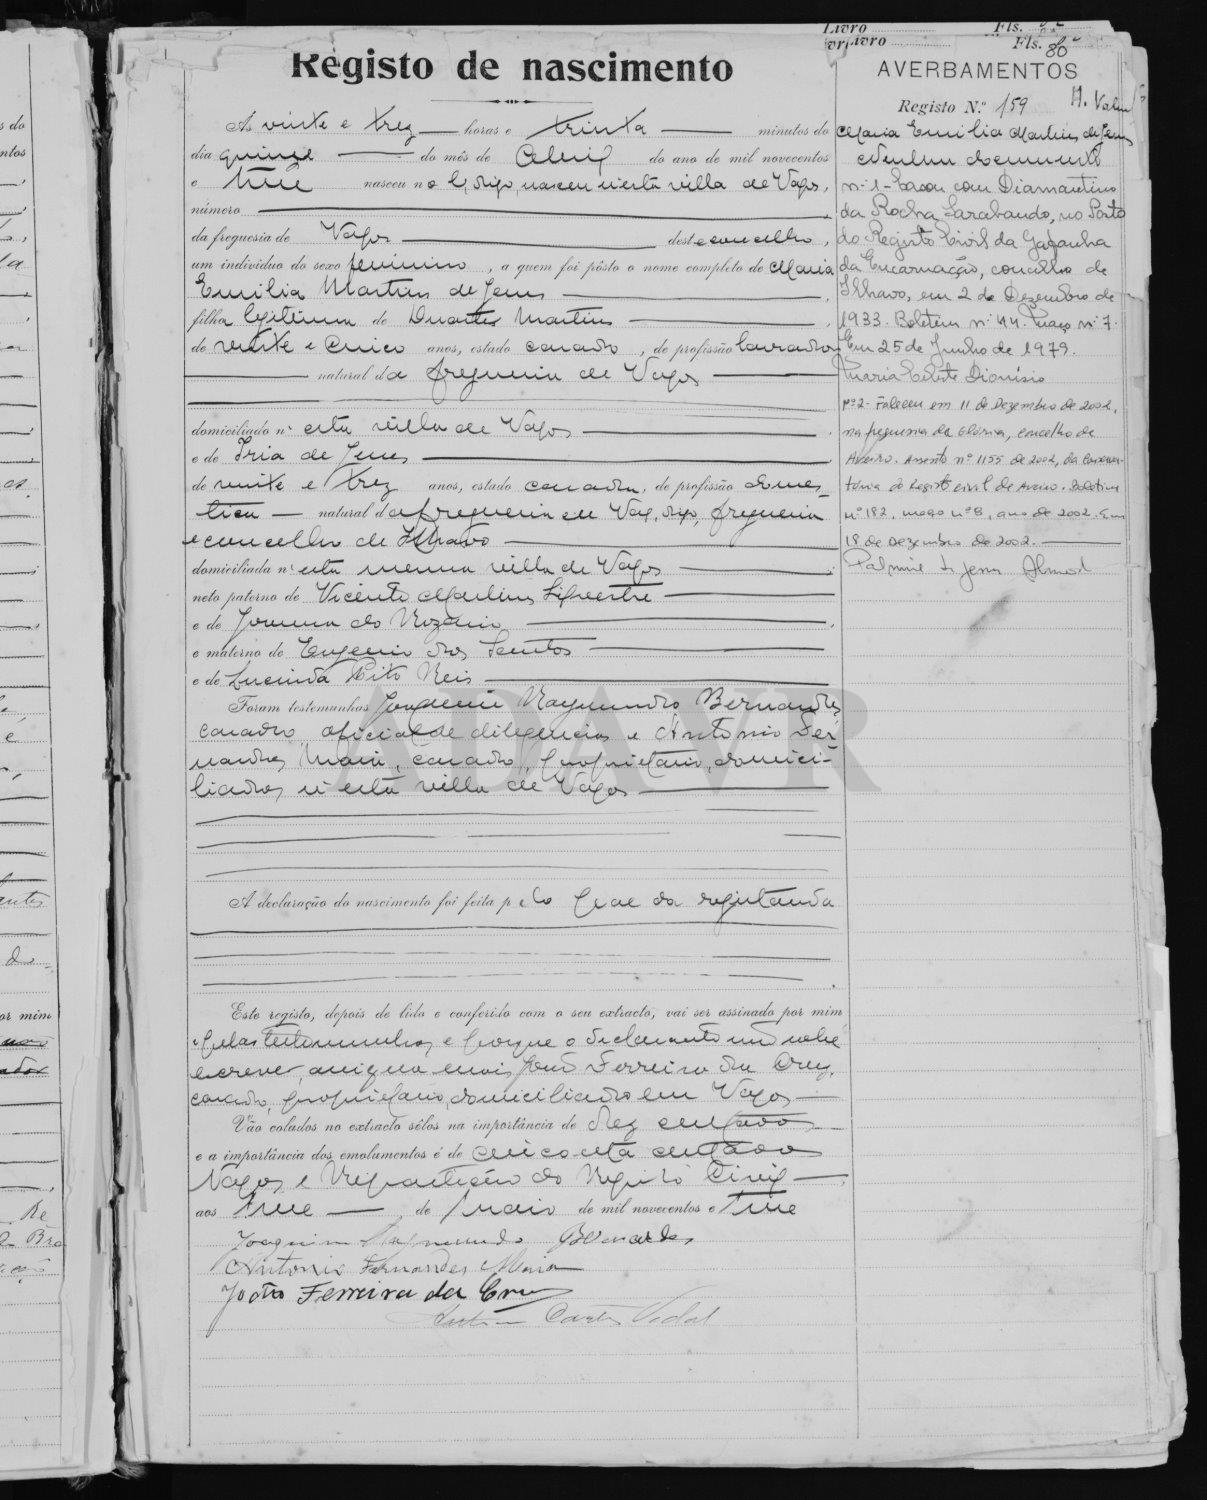 Livro Fls.
Livro Fls. 80
Registo de nascimento
AVERBAMENTOS
Registo N.º 159
Às vinte e trez horas e trinta minutos do
dia quinze do mês de Abril do ano de mil novecentos
e treze nasceu no digo nasceu n'esta villa de Vagos,
número
da freguesia de Vagos deste concelho,
um indivíduo do sexo feminino, a quem foi pôsto o nome completo de Maria
Emilia Martins de Jesus
filha legitima de Duarte Martins
de vinte e cinco anos, estado casado, de profissão lavrador
natural da freguesia de Vagos
domiciliado n'esta villa de Vagos
e de Iria de Jesus
de vinte e trez anos, estado casada, de profissão domes-
tica natural da freguesia de Vag, digo, freguesia
e concelho de Ilhavo
domiciliada n'esta mesma villa de Vagos
neto paterno de Vicente Martins Silvestre
e de Joanna do Rozario
e materno de Eugenio dos Santos
e de Lucinda Pito Reis
Foram testemunhas Joaquim Raymundo Bernardes,
casado, oficial de diligencias e Antonio Fer
nandes Maia, casado, proprietario, domici-
liados n'esta villa de Vagos
A declaração do nascimento foi feita pelo pae da registanda
Este registo, depois de lido e conferido com o seu extracto, vai ser assinado por mim
e pelas testemunhas, e porque o declarante não sabe
escrever, assigna João Ferreira da Cruz,
casado, proprietario, domiciliado em Vagos
Vão colados no extracto sêlos na importância de dez centavos
e a importância dos emolumentos é de cincoenta centavos
Vagos e Repartição do Registo Civil
aos treze de Maio de mil novecentos e treze
Joaquim Raymundo Bernardes
Antonio Fernandes Maia
João Ferreira da Cruz
Vidal
Maria Emilia Martins de Jesus
Nenhum documento
nº 1 - Casou com Diamantino
da Rocha Sarabando, no Posto
do Registo Civil da Gafanha
da Encarnação, concelho de
Ilhavo, em 2 de Dezembro de
1933. Boletim nº 44. Maço nº 7.
Em 25 de Junho de 1979.
Maria Celeste Dionísio
Nº 2 - Faleceu em 11 de Dezembro de 2002,
na freguesia da Glória, concelho de
Aveiro. Assento nº 1155 de 2002, da Conserva-
tória do Registo Civil de Aveiro. Boletim
nº 182, maço nº 8, ano de 2002. Em
18 de Dezembro de 2002.
ADAVR